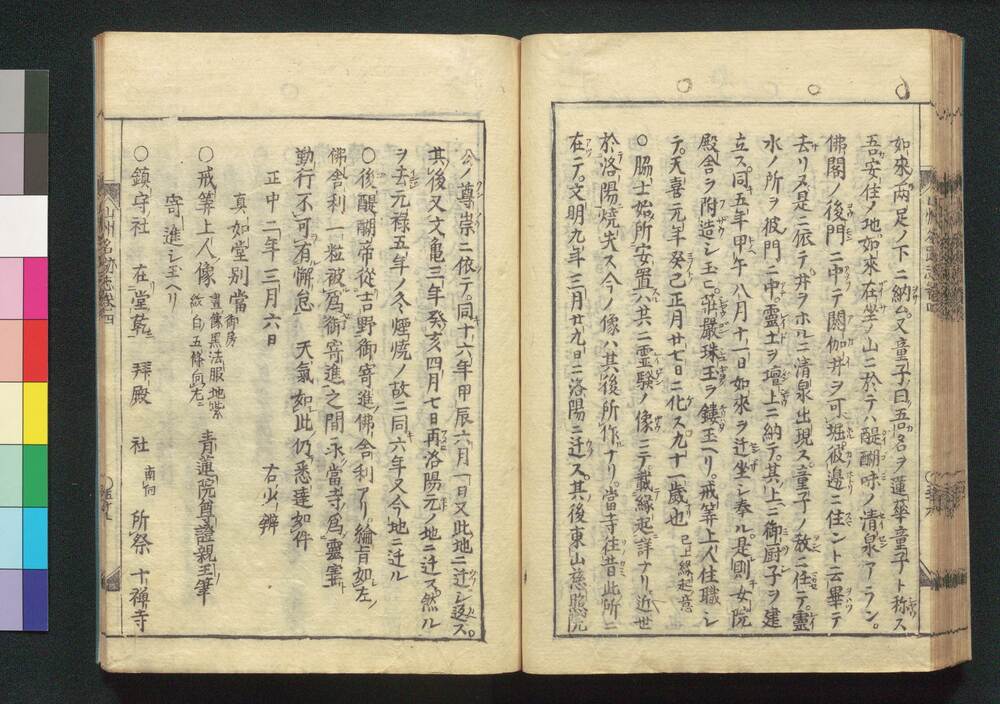 如來兩足ノ下ニ納ム又童子曰吾名ヲ蓮華童子ト称ス
吾安住ノ地如來在坐ノ山ニ於テハ醍醐味ノ清泉アラン。
佛閣ノ後門ニ中テ閼伽井ヲ可堀彼邊ニ住ント云畢テ
去リヌ是ニ依テ井ヲホルニ清泉出現ス童子ノ教ニ任テ靈
水ノ所ヲ彼門ニ中。靈土ヲ壇上ニ納テ。其上ニ御厨子ヲ建
立ス。同五年甲午八月十一日如來ヲ迁坐シ奉ル。是則女院
殿舎ヲ附造シ玉ヒ。莊嚴珠玉ヲ鏤玉ヘリ。戒筭上人住職シ
テ。天喜元年癸巳正月廿七日ニ化ス九十一歲也已上緣起意
○脇士始所安置ハ其ニ靈驗ノ像ニテ載緣起ニ詳ナリ。近世
於洛陽燒失ス今ノ像ハ其後所作ナリ。當寺徃昔此所ニ
在テ。文明九年三月廿九日ニ洛陽ニ迁ス。其後東山慈照院
公ノ尊崇ニ依テ。同十六年甲辰六月一日又此地ニ迁シ返ス。
其後又文亀三年癸亥四月七日再洛陽元ノ地ニ迁ス然ル
ヲ去元禄五年ノ冬煙燒ノ故ニ同六年又今地ニ迁ル
○後醍醐帝從吉野御寄進佛舎利アリ。綸旨如左
佛舎利一粒被爲御寄進之間永當寺爲靈寶
勤行不可有懈怠天氣如此仍悉達如件
正中二年三月六日 右少辨
真如堂別當御房
○戒筭上人像 黑法服地紫 紋白五條 青蓮院尊證親王筆
寄進シ玉ヘリ
○鎮守社 在堂乾 拜殿 社南向 所祭十禪寺
山州名跡志卷四